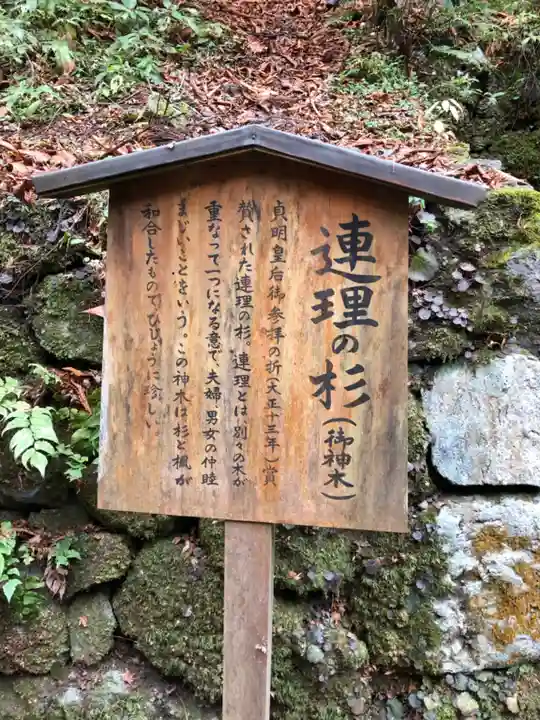 連理の杉(御神木)
貞明皇后御参拝の折(大正十三年)賞
賛された連理の杉。連理とは、別々の木が
重なって一つになる意で、夫婦、男女の仲睦
まじいことをいう。この神木は杉と楓が
和合したものでひじょうに珍しい